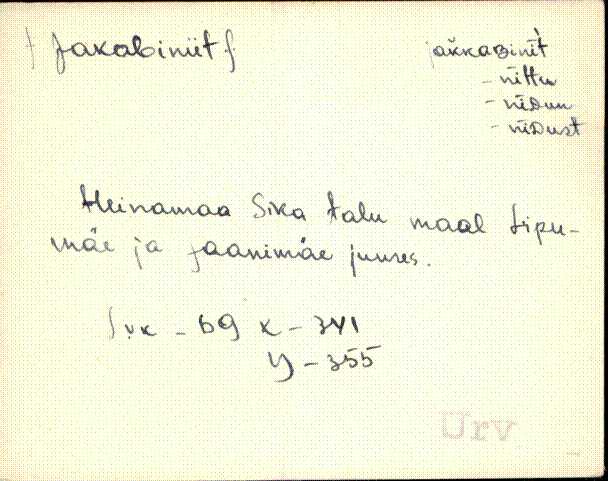 Jakabiniit
jaκκaʙinìt
- nittu
- niᴅuu
- niᴅust
Heinamaa Sika talu maal Lipu-
mäe ja Jaanimäe juures.
69 x - 341
y - 355
Urv